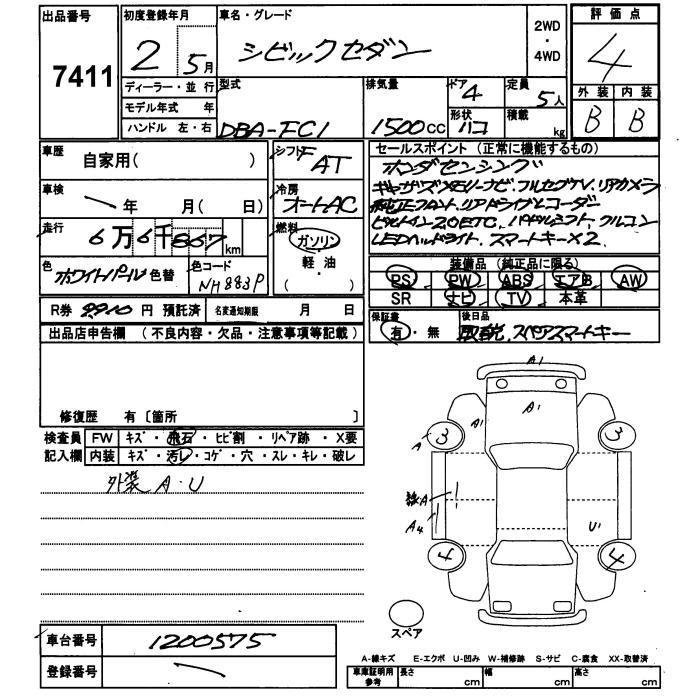 出品番号 7411
初度登録年月 2 5月
車名・グレード シビックセダン
2WD・4WD
評価点 4
ディーラー・並行
モデル年式 年
ハンドル 左・右
型式 DBA-FC1
排気量 1500cc
ドア 4
形状 ハコ
定員 5人
積載 kg
外装 内装
B B
車歴 自家用( )
車検 年 月( 日)
走行 6万6千867km
色 ホワイトパール 色替
色コード NH883P
シフト FAT
冷房 オートAC
燃料 ガソリン
軽・油
( )
セールスポイント (正常に機能するもの)
ホンダセンシング
ギャザズメモリーナビ.フルセグTV.リアカメラ
純正フロント.リアドライブレコーダー
ビルトイン2.0ETC.パドルシフト.クルコン
LEDヘッドライト.スマートキー×2.
装備品 (純正品に限る)
PS PW ABS エアB AW
SR ナビ TV 本革
R券 9910 円 預託済 名変通知期限 月 日
保証書 有・無
後日品 取説.スペアスマートキー
出品店申告欄 (不良内容・欠品・注意事項等記載)
修復歴 有〔箇所 〕
検査員記入欄
FW キズ・飛石・ヒビ割・リペア跡・X要
内装 キズ・汚レ・コゲ・穴・スレ・キレ・破レ
外装 A・U
A1
A1
A1
A 3
3
A
A4
U1
4
4
スペア
車台番号 1200575
登録番号
A-線キズ E-エクボ U-凹み W-補修跡 S-サビ C-腐食 XX-取替済
車庫証明用参考 長さ cm 幅 cm 高さ cm